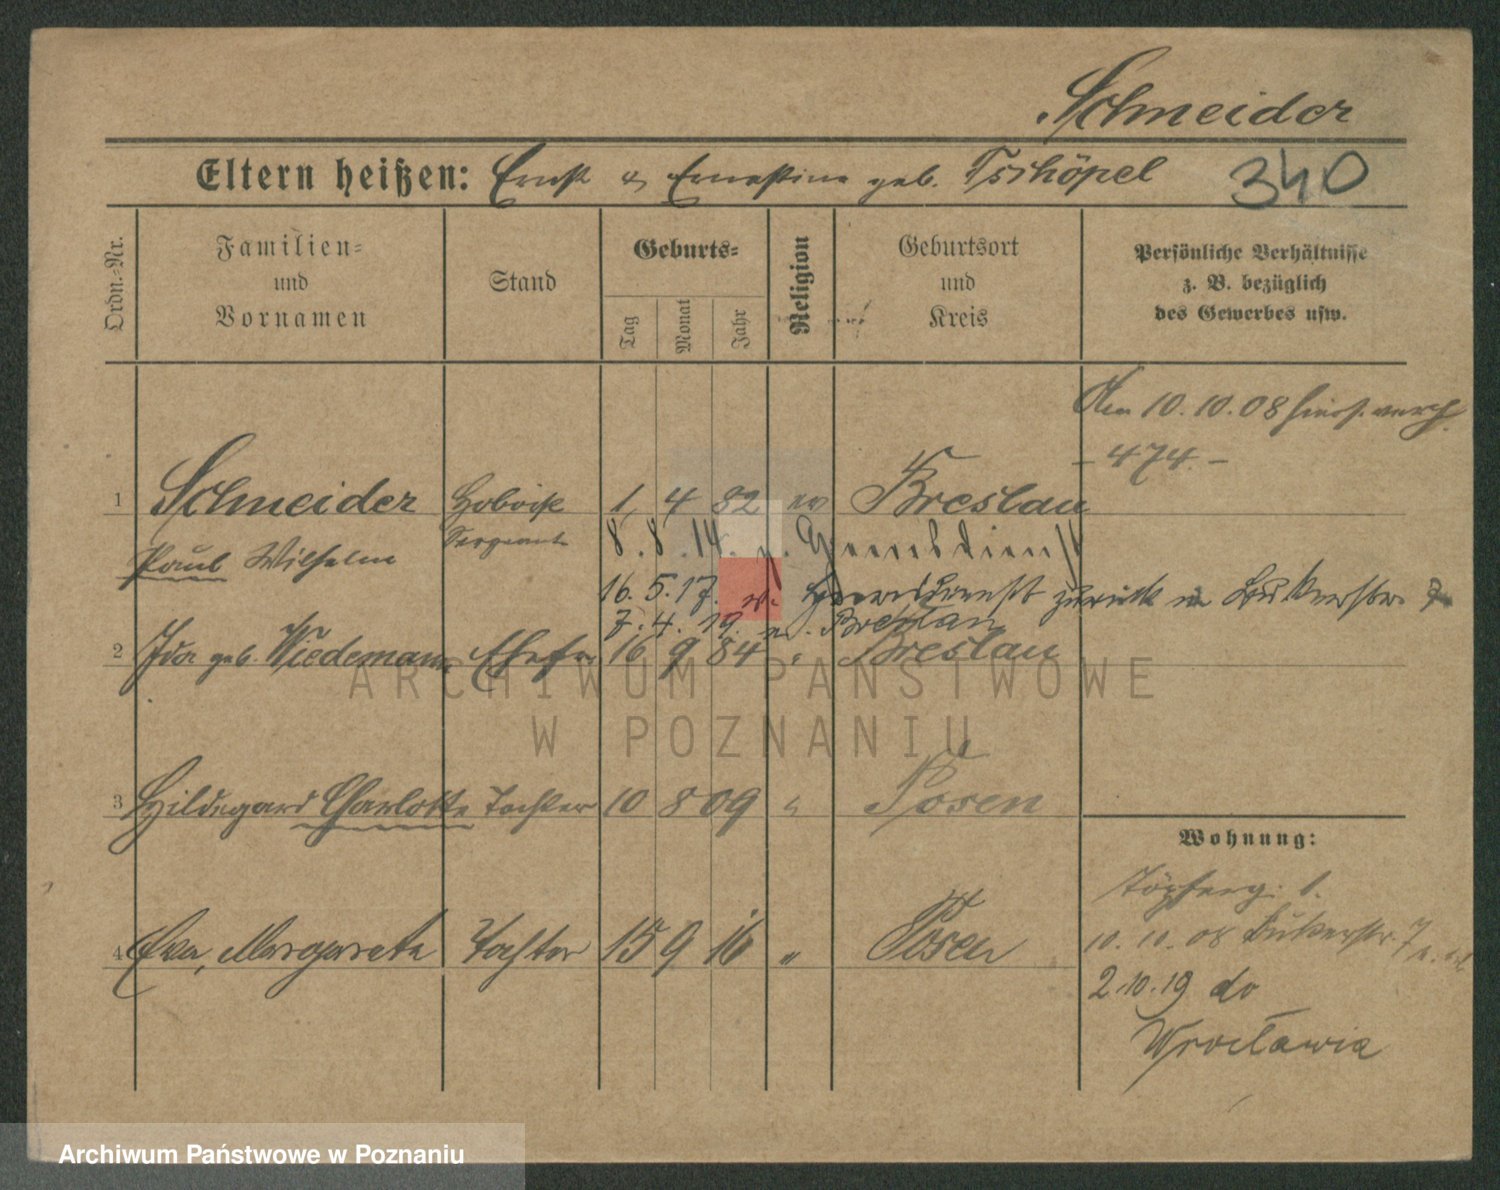 Schneider
Eltern heißen: Ernst & Ernestine geb. Tschöpel 340
Ordn.-Nr.
Familien-
und
Vornamen
Stand
Geburts-
Tag
Monat
Jahr
Religion
Geburtsort
und
Kreis
Persönliche Verhältnisse
z. B. bezüglich
des Gewerbes usw.
Am 10.10.08 hiers. verh.
- 474. -
1 Schneider Hoboist 1 4 82 ev Breslau
Paul Wilhelm Sergeant 8.8.14. z. Heeresdienst
16.5.17. v. Heeresdienst zurück n Bukerstr. 7
7.4.19. n. Breslau
2 Ida geb. Wiedemann Ehefr 16 9 84 " Breslau
3 Hildegard Charlotte Tochter 10 8 09 " Posen
4 Eva, Margarete Tochter 15 9 16 " Posen
Wohnung:
Töpferg. 1.
10.10.08 Bukerstr. 7
2.10.19 do
Wrocławia
ARCHIWUM PAŃSTWOWE
W POZNANIU
Archiwum Państwowe w Poznaniu